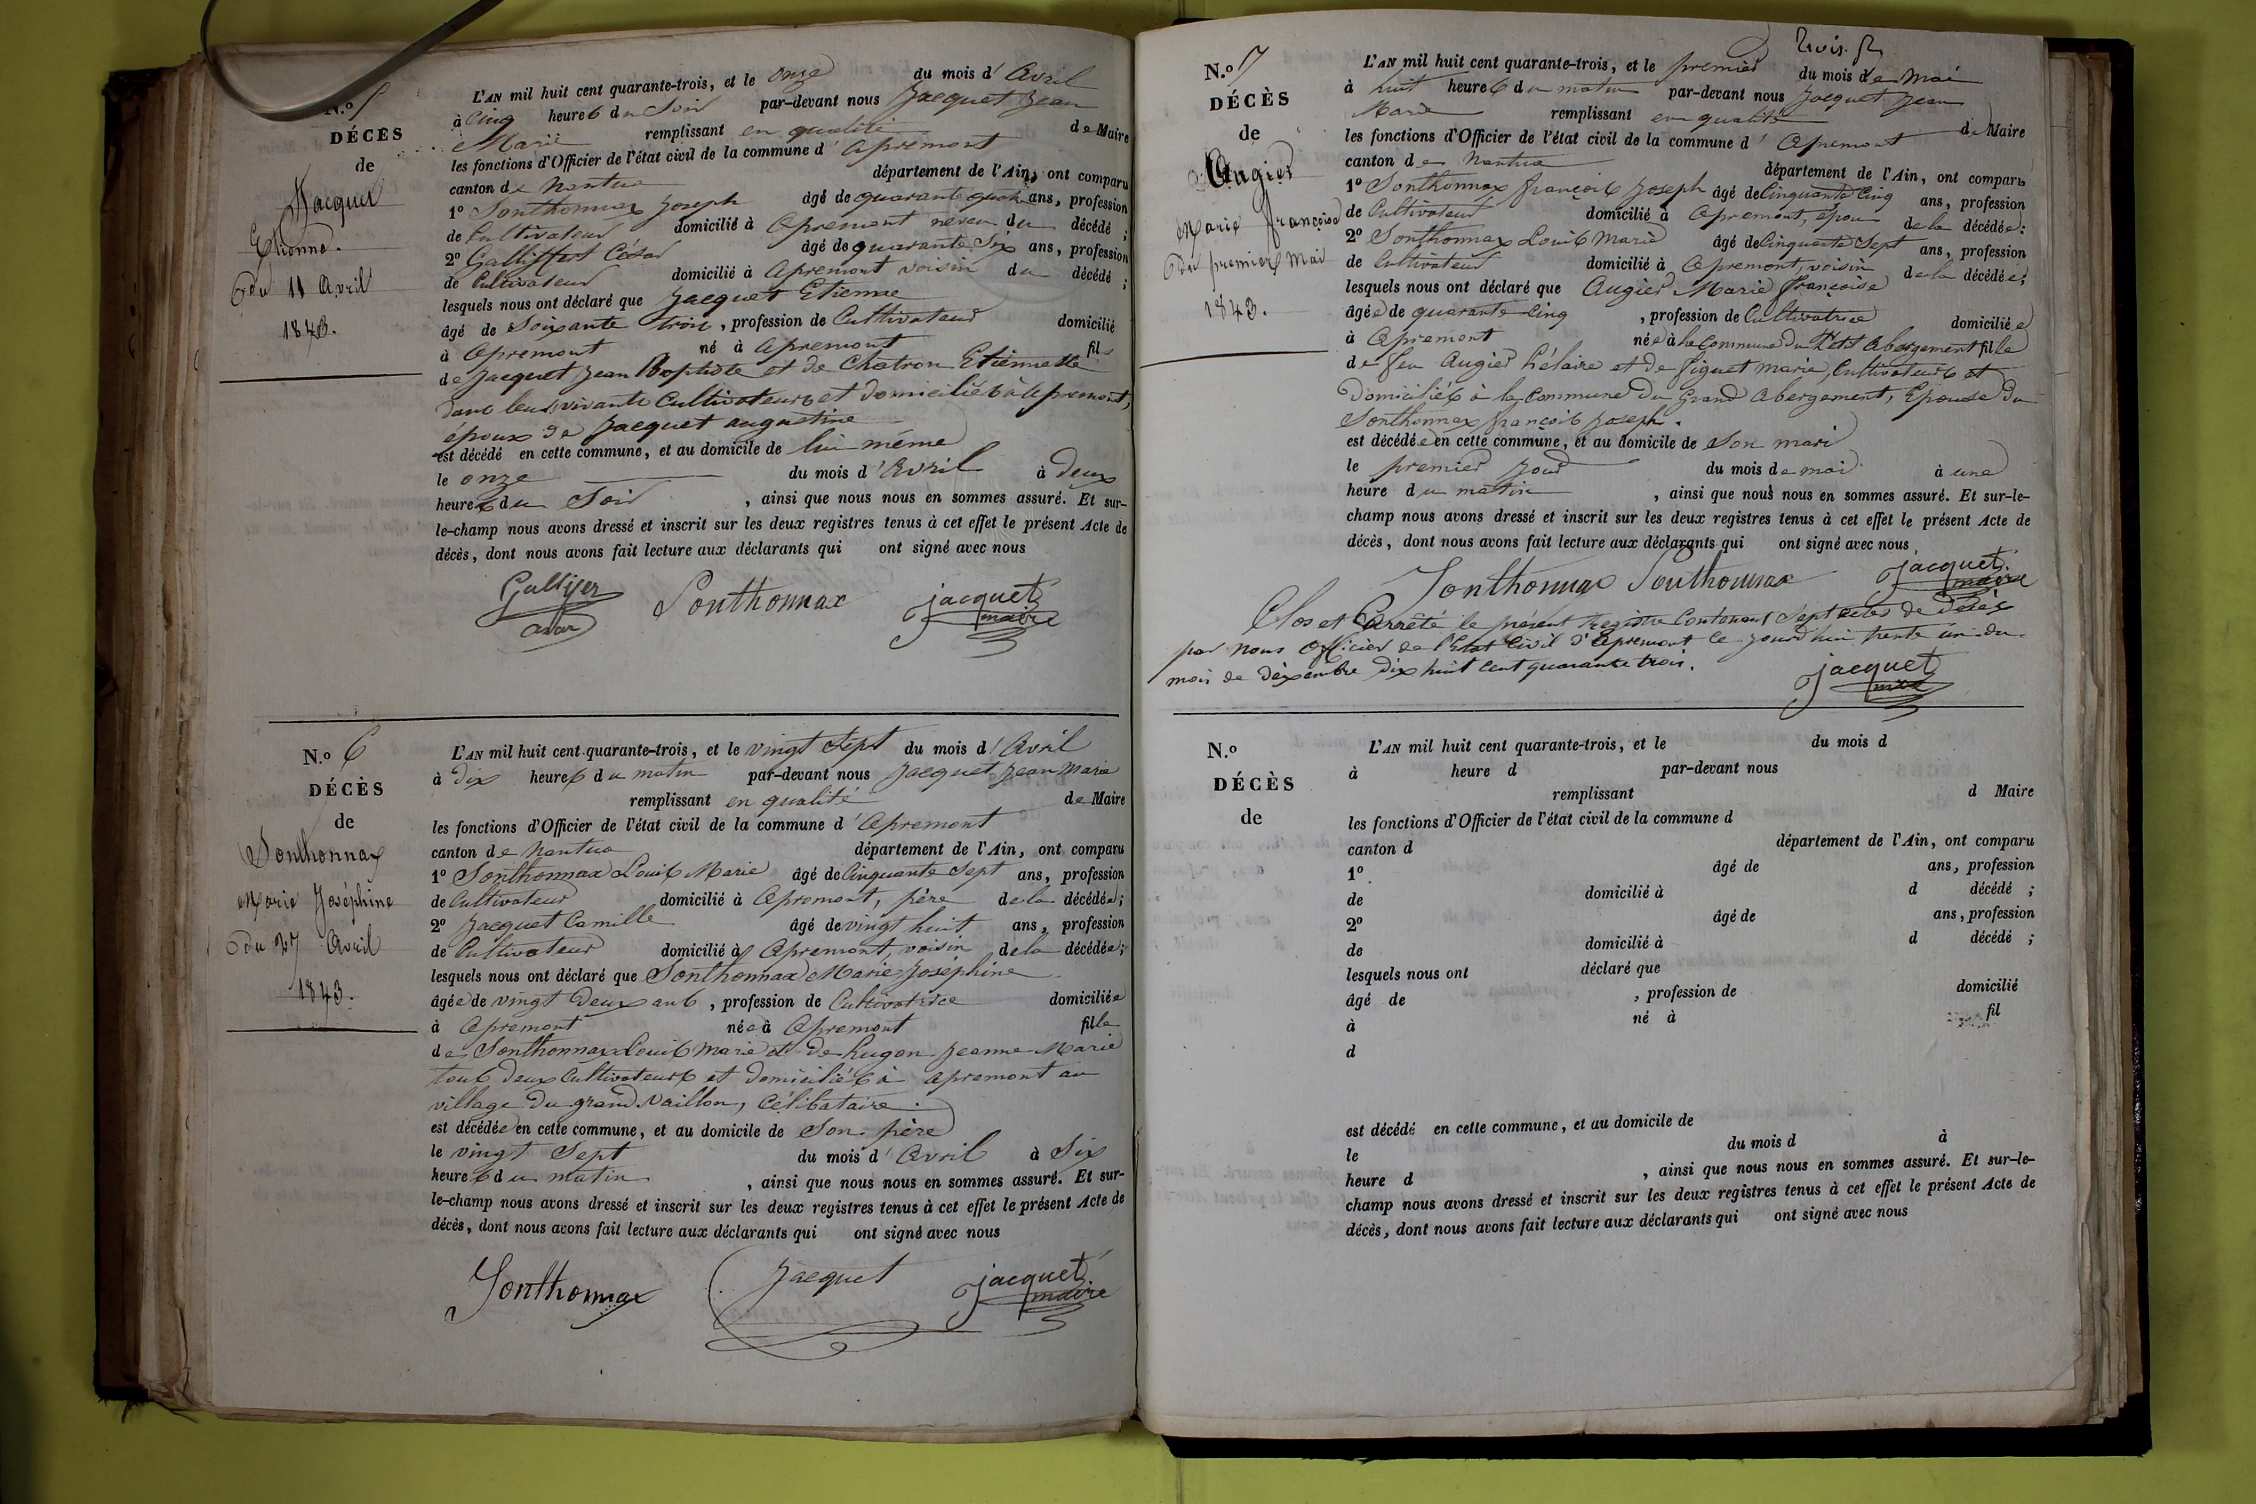 N.o 5
DÉCÈS
de
Jacquet
Etienne.
du 11 Avril
1843.
L'AN mil huit cent quarante-trois, et le onze du mois d'Avril
à Cinq heures du Soir par-devant nous Jacquet Jean
Marie remplissant en qualité de Maire
les fonctions d'Officier de l'état civil de la commune d'Apremont
canton de Nantua département de l'Ain, ont comparu
1º Sonthonnax Joseph âgé de quarante quatre ans, profession
de Cultivateur domicilié à Apremont neveu du décédé ;
2º Galliffet César âgé de quarante Six ans, profession
de Cultivateur domicilié à Apremont voisin du décédé ;
lesquels nous ont déclaré que Jacquet Etienne
âgé de Soixante trois, profession de Cultivateur domicilié
à Apremont né à Apremont fils
de Jacquet Jean Baptiste et de Chatron Etiennette
dans leur vivants Cultivateurs et domiciliés à Apremont,
époux de Jacquet augustine
est décédé en cette commune, et au domicile de lui même
le onze du mois d'Avril à Deux
heures du Soir, ainsi que nous nous en sommes assuré. Et sur-
le-champ nous avons dressé et inscrit sur les deux registres tenus à cet effet le présent Acte de
décès, dont nous avons fait lecture aux déclarants qui ont signé avec nous
Sonthonnax jacquet
maire
N.o 6
DÉCÈS
de
Sonthonnax
Marie Joséphine
du 27 Avril
1843.
L'AN mil huit cent quarante-trois, et le vingt Sept du mois d'Avril
à dix heures du matin par-devant nous Jacquet Jean Marie
remplissant en qualité de Maire
les fonctions d'Officier de l'état civil de la commune d'Apremont
canton de Nantua département de l'Ain, ont comparu
1º Sonthonnax Louis Marie âgé de Cinquante Sept ans, profession
de Cultivateur domicilié à Apremont, père de la décédée ;
2º Jacquet Camille âgé de vingt huit ans, profession
de Cultivateur domicilié à Apremont, voisin de la décédée ;
lesquels nous ont déclaré que Sonthonnax Marie Joséphine
âgée de vingt Deux ans, profession de Cultivatrice domiciliée
à Apremont née à Apremont fille
de Sonthonnax Louis Marie et de hugon Jeanne Marie
tous deux Cultivateurs et domiciliés à apremont au
village du grand Vaillon, Célibataire.
est décédée en cette commune, et au domicile de Son père
le vingt Sept du mois d'Avril à Six
heures du matin, ainsi que nous nous en sommes assuré. Et sur-
le-champ nous avons dressé et inscrit sur les deux registres tenus à cet effet le présent Acte de
décès, dont nous avons fait lecture aux déclarants qui ont signé avec nous
Sonthonnax Jacquet jacquet
maire
N.o 7
DÉCÈS
de
Augier
Marie françoise
du premier Mai
1843.
L'AN mil huit cent quarante-trois, et le premier du mois de Mai
à huit heures du matin par-devant nous Jacquet Jean
Marie remplissant en qualité de Maire
les fonctions d'Officier de l'état civil de la commune d'Apremont
canton de Nantua département de l'Ain, ont comparu
1º Sonthonnax françois Joseph âgé de Cinquante Cinq ans, profession
de Cultivateur domicilié à Apremont, époux de la décédée ;
2º Sonthonnax Louis Marie âgé de Cinquante Sept ans, profession
de Cultivateur domicilié à Apremont, voisin de la décédée ;
lesquels nous ont déclaré que Augier Marie françoise
âgée de quarante Cinq, profession de Cultivatrice domiciliée
à Apremont née à la Commune du Petit Abergement fille
de feu Augier hélaire et de figuet marie, Cultivateurs et
domiciliés à la Commune du Grand Abergement, Epouse du
Sonthonnax françois Joseph.
est décédée en cette commune, et au domicile de Son mari
le premier jour du mois de mai à une
heure du matin, ainsi que nous nous en sommes assuré. Et sur-le-
champ nous avons dressé et inscrit sur les deux registres tenus à cet effet le présent Acte de
décès, dont nous avons fait lecture aux déclarants qui ont signé avec nous
Sonthonnax Sonthonnax jacquet
maire
Clos et Arrêté le présent Registre Contenant Sept actes de Décès
par nous Officier de l'Etat Civil d'Apremont Ce jourd'hui trente un du
mois de Décembre Dix huit Cent quarante trois.
jacquet
N.o
DÉCÈS
de
L'AN mil huit cent quarante-trois, et le du mois d
à heure d par-devant nous
remplissant d Maire
les fonctions d'Officier de l'état civil de la commune d
canton d département de l'Ain, ont comparu
1º âgé de ans, profession
de domicilié à d décédé ;
2º âgé de ans, profession
de domicilié à d décédé ;
lesquels nous ont déclaré que
âgé de , profession de domicilié
à né à fil
d
est décédé en cette commune, et au domicile de
le du mois d à
heure d , ainsi que nous nous en sommes assuré. Et sur-le-
champ nous avons dressé et inscrit sur les deux registres tenus à cet effet le présent Acte de
décès, dont nous avons fait lecture aux déclarants qui ont signé avec nous